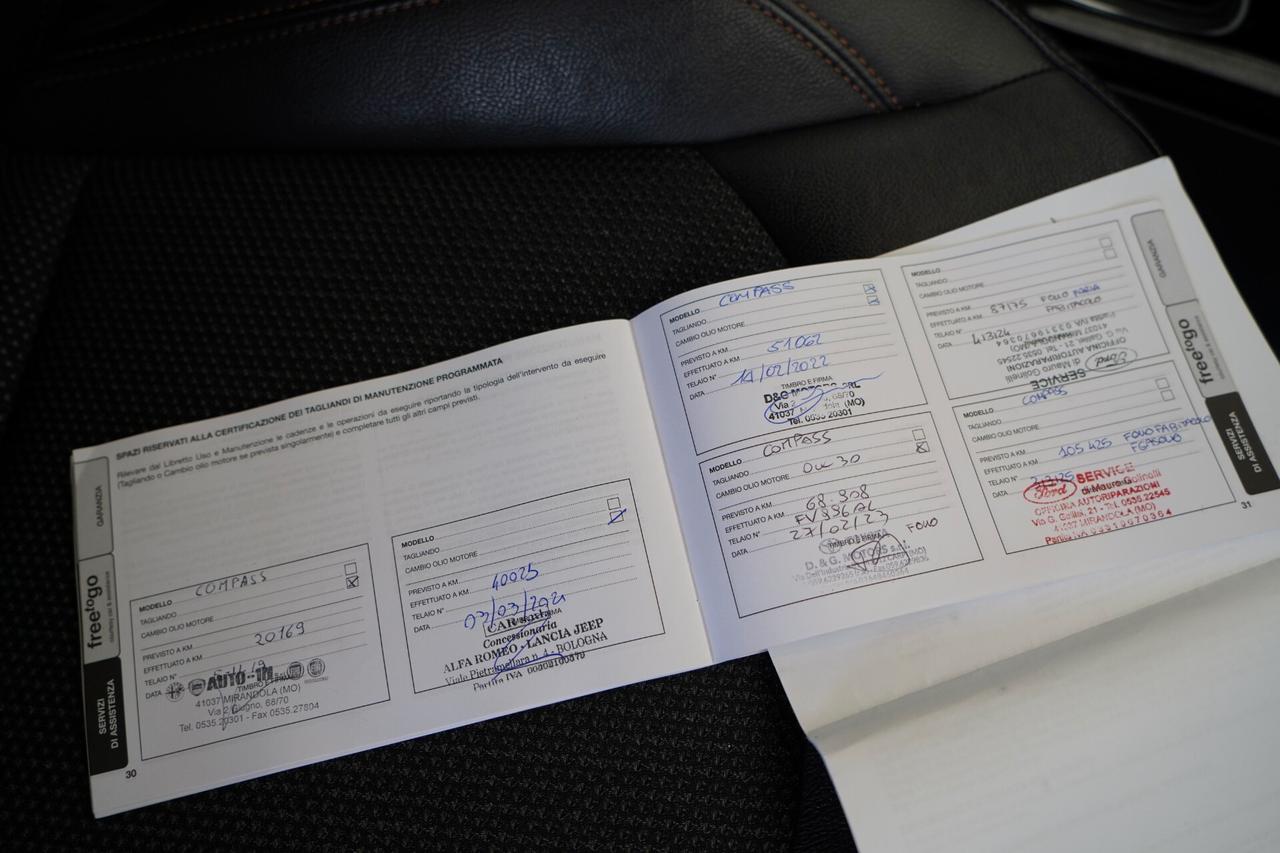 SPAZI RISERVATI ALLA CERTIFICAZIONE DEI TAGLIANDI DI MANUTENZIONE PROGRAMMATA
Rilevare dal Libretto Uso e Manutenzione le cadenze e le operazioni da eseguire riportando la tipologia dell'intervento da eseguire
(Tagliando o Cambio olio motore se prevista singolarmente) e completare tutti gli altri campi previsti.
GARANZIA
freetogo
SERVIZI
DI ASSISTENZA
30
MODELLO COMPASS
TAGLIANDO
CAMBIO OLIO MOTORE
PREVISTO A KM
EFFETTUATO A KM 20169
TELAIO N°
DATA
AUTO-IN
TIMBRO E FIRMA
41037 MIRANDOLA (MO)
Via 2 Giugno, 68/70
Tel. 0535.20301 - Fax 0535.27804
MODELLO
TAGLIANDO
CAMBIO OLIO MOTORE
PREVISTO A KM
EFFETTUATO A KM 40025
TELAIO N°
DATA 03/03/2021
TIMBRO E FIRMA
Concessionaria
ALFA ROMEO - LANCIA JEEP
Viale Pietramellara n. 4 - BOLOGNA
Partita IVA
MODELLO COMPASS
TAGLIANDO
CAMBIO OLIO MOTORE
PREVISTO A KM
EFFETTUATO A KM 51062
TELAIO N°
DATA 11/02/2022
TIMBRO E FIRMA
D&G MOTORS SRL
Via 2 68/70
41037 (MO)
Tel. 0535 20301
MODELLO COMPASS
TAGLIANDO
CAMBIO OLIO MOTORE
PREVISTO A KM
EFFETTUATO A KM 68.908
TELAIO N°
DATA 27/02/23
TIMBRO E FIRMA
D. & G. MOTORS s.r.l.
MODELLO
TAGLIANDO
CAMBIO OLIO MOTORE
PREVISTO A KM
EFFETTUATO A KM 87175
TELAIO N°
DATA 4/3/24
Ford SERVICE
di Mauro Golinelli
OFFICINA AUTORIPARAZIONI
Via G. Galilei, 21 - Tel. 0535.22545
41037 MIRANDOLA (MO)
Partita IVA 03319670364
COMPASS
MODELLO
TAGLIANDO
CAMBIO OLIO MOTORE
PREVISTO A KM
EFFETTUATO A KM 105 425
TELAIO N°
DATA
Ford SERVICE
OFFICINA AUTORIPARAZIONI
Via G. Galilei, 21 - Tel. 0535.22545
41037 MIRANDOLA (MO)
Partita IVA 03319670364
GARANZIA
freetogo
SERVIZI
DI ASSISTENZA
31